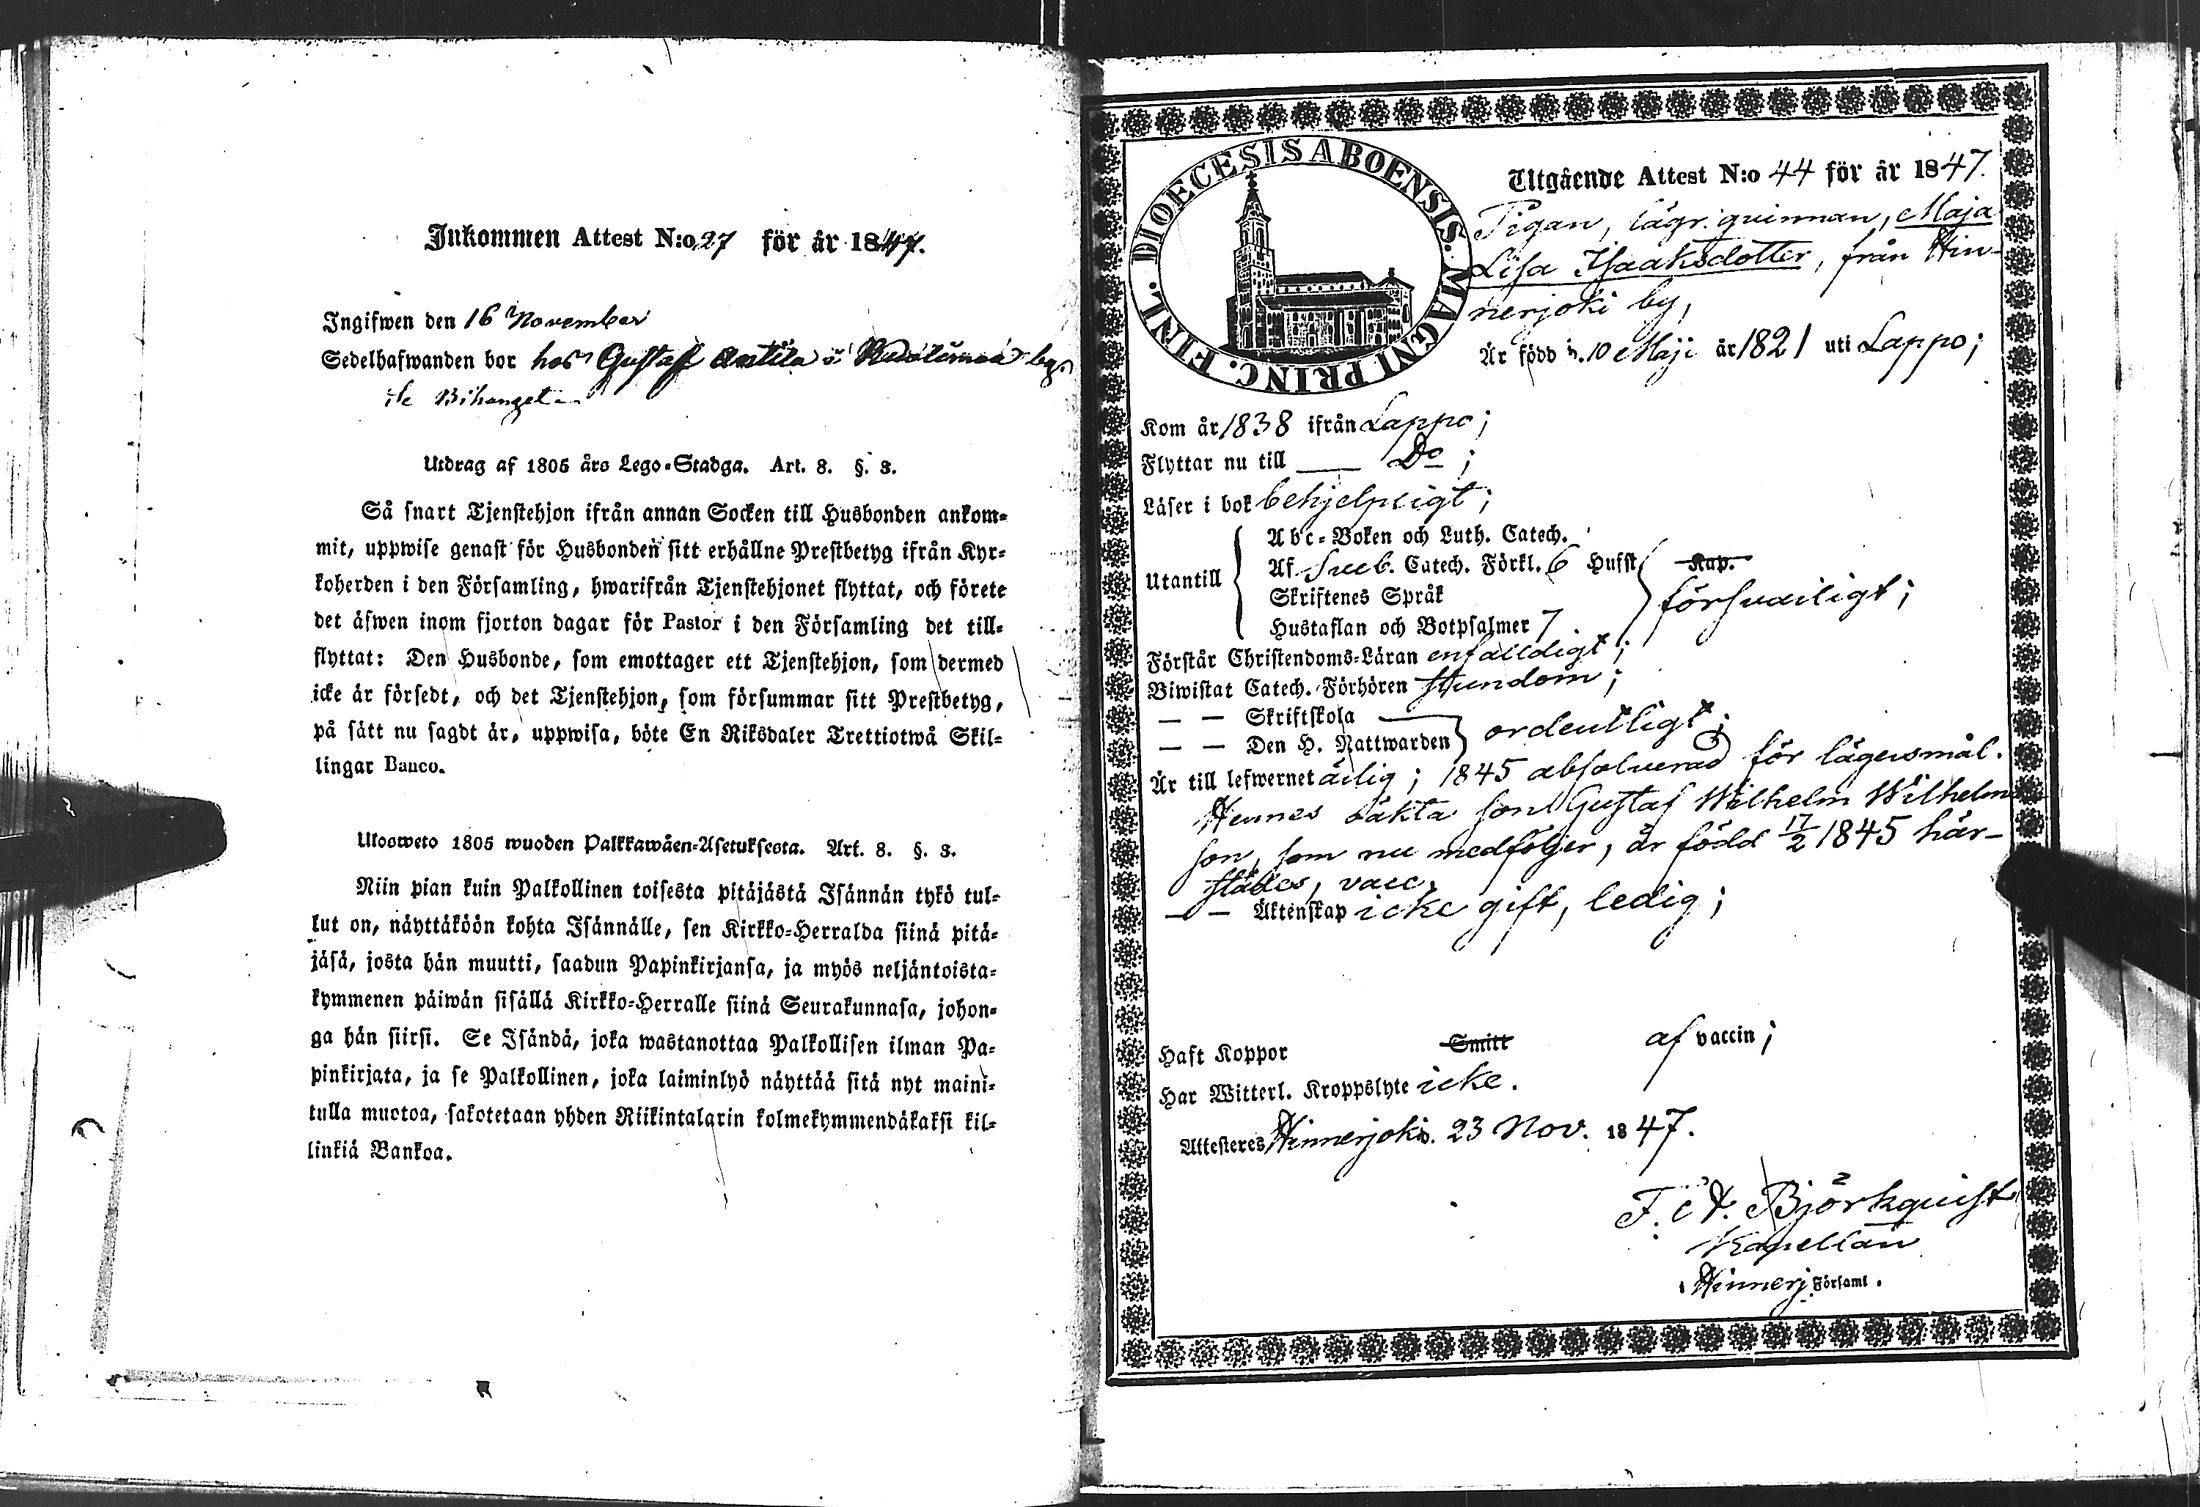 Inkommen Attest N:o 27 för år 1847.
Ingifwen den 16 November
Sedelhafwanden bor hos Gustaf Anttila i by
se Bihanget
Utdrag af 1805 års Lego-Stadga. Art. 8. §. 3.
Så snart Tjenstehjon ifrån annan Socken till Husbonden ankom-
mit, uppwise genast för Husbonden sitt erhållne Prestbetyg ifrån Kyr-
koherden i den Församling, hwarifrån Tjenstehjonet flyttat, och förete
det äfwen inom fjorton dagar för Pastor i den Församling det till-
flyttat: Den Husbonde, som emottager ett Tjenstehjon, som dermed
icke är försedt, och det Tjenstehjon, som försummar sitt Prestbetyg,
på sätt nu sagdt är, uppwisa, böte En Riksdaler Trettiotwå Skil-
lingar Banco.
Ulosweto 1805 wuoden Palkkawäen-Asetuksesta. Art. 8. §. 3.
Niin pian kuin Palkollinen toisesta pitäjästä Isännän tykö tul-
lut on, näyttäköön kohta Isännälle, sen Kirkko-Herralda siinä pitä-
jäsä, josta hän muutti, saadun Papinkirjansa, ja myös neljäntoista-
kymmenen päiwän sisällä Kirkko-Herralle siinä Seurakunnasa, johon-
ga hän siirsi. Se Isändä, joka wastanottaa Palkollisen ilman Pa-
pinkirjata, ja se Palkollinen, joka laiminlyö näyttää sitä nyt maini-
tulla muotoa, sakotetaan yhden Riikintalarin kolmekymmendäkaksi kil-
linkiä Bankoa.
DIOECESIS ABOENSIS. MAGNI PRINC. FINL.
Utgående Attest N:o 44 för år 1847.
Pigan, lägr. quinnan, Maja
Lisa Isaaksdotter, från Hin-
nerjoki by,
Är född d. 10 Maji år 1821 uti Lappo;
Kom år 1838 ifrån Lappo;
Flyttar nu till — Do;
Läser i bok behjelpligt;
Abc-Boken och Luth. Catech.
Utantill Af Sveb. Catech. Förkl. 6 Hufst Kap.
Skriftenes Språk försvarligt;
Hustaflan och Botpsalmer 7
Förstår Christendoms-Läran enfalldigt;
Biwistat Catech. Förhören stundom;
— — Skriftskola
— — Den H. Nattwarden ordentligt;
Är till lefwernet ärlig; 1845 absolverad för lägersmål.
Hennes oäkta son Gustaf Wilhelm Wilhelms
son, som nu medföljer, är född 17/2 1845 här-
städes, vacc.
— — Äktenskap icke gift, ledig;
Haft Koppor Smitt af vaccin;
Har Witterl. Kroppslyte icke.
Attesteres Hinnerjoki d. 23 Nov. 1847.
F. A. Björkquist
Kapellan
Hinnerj. Församl.